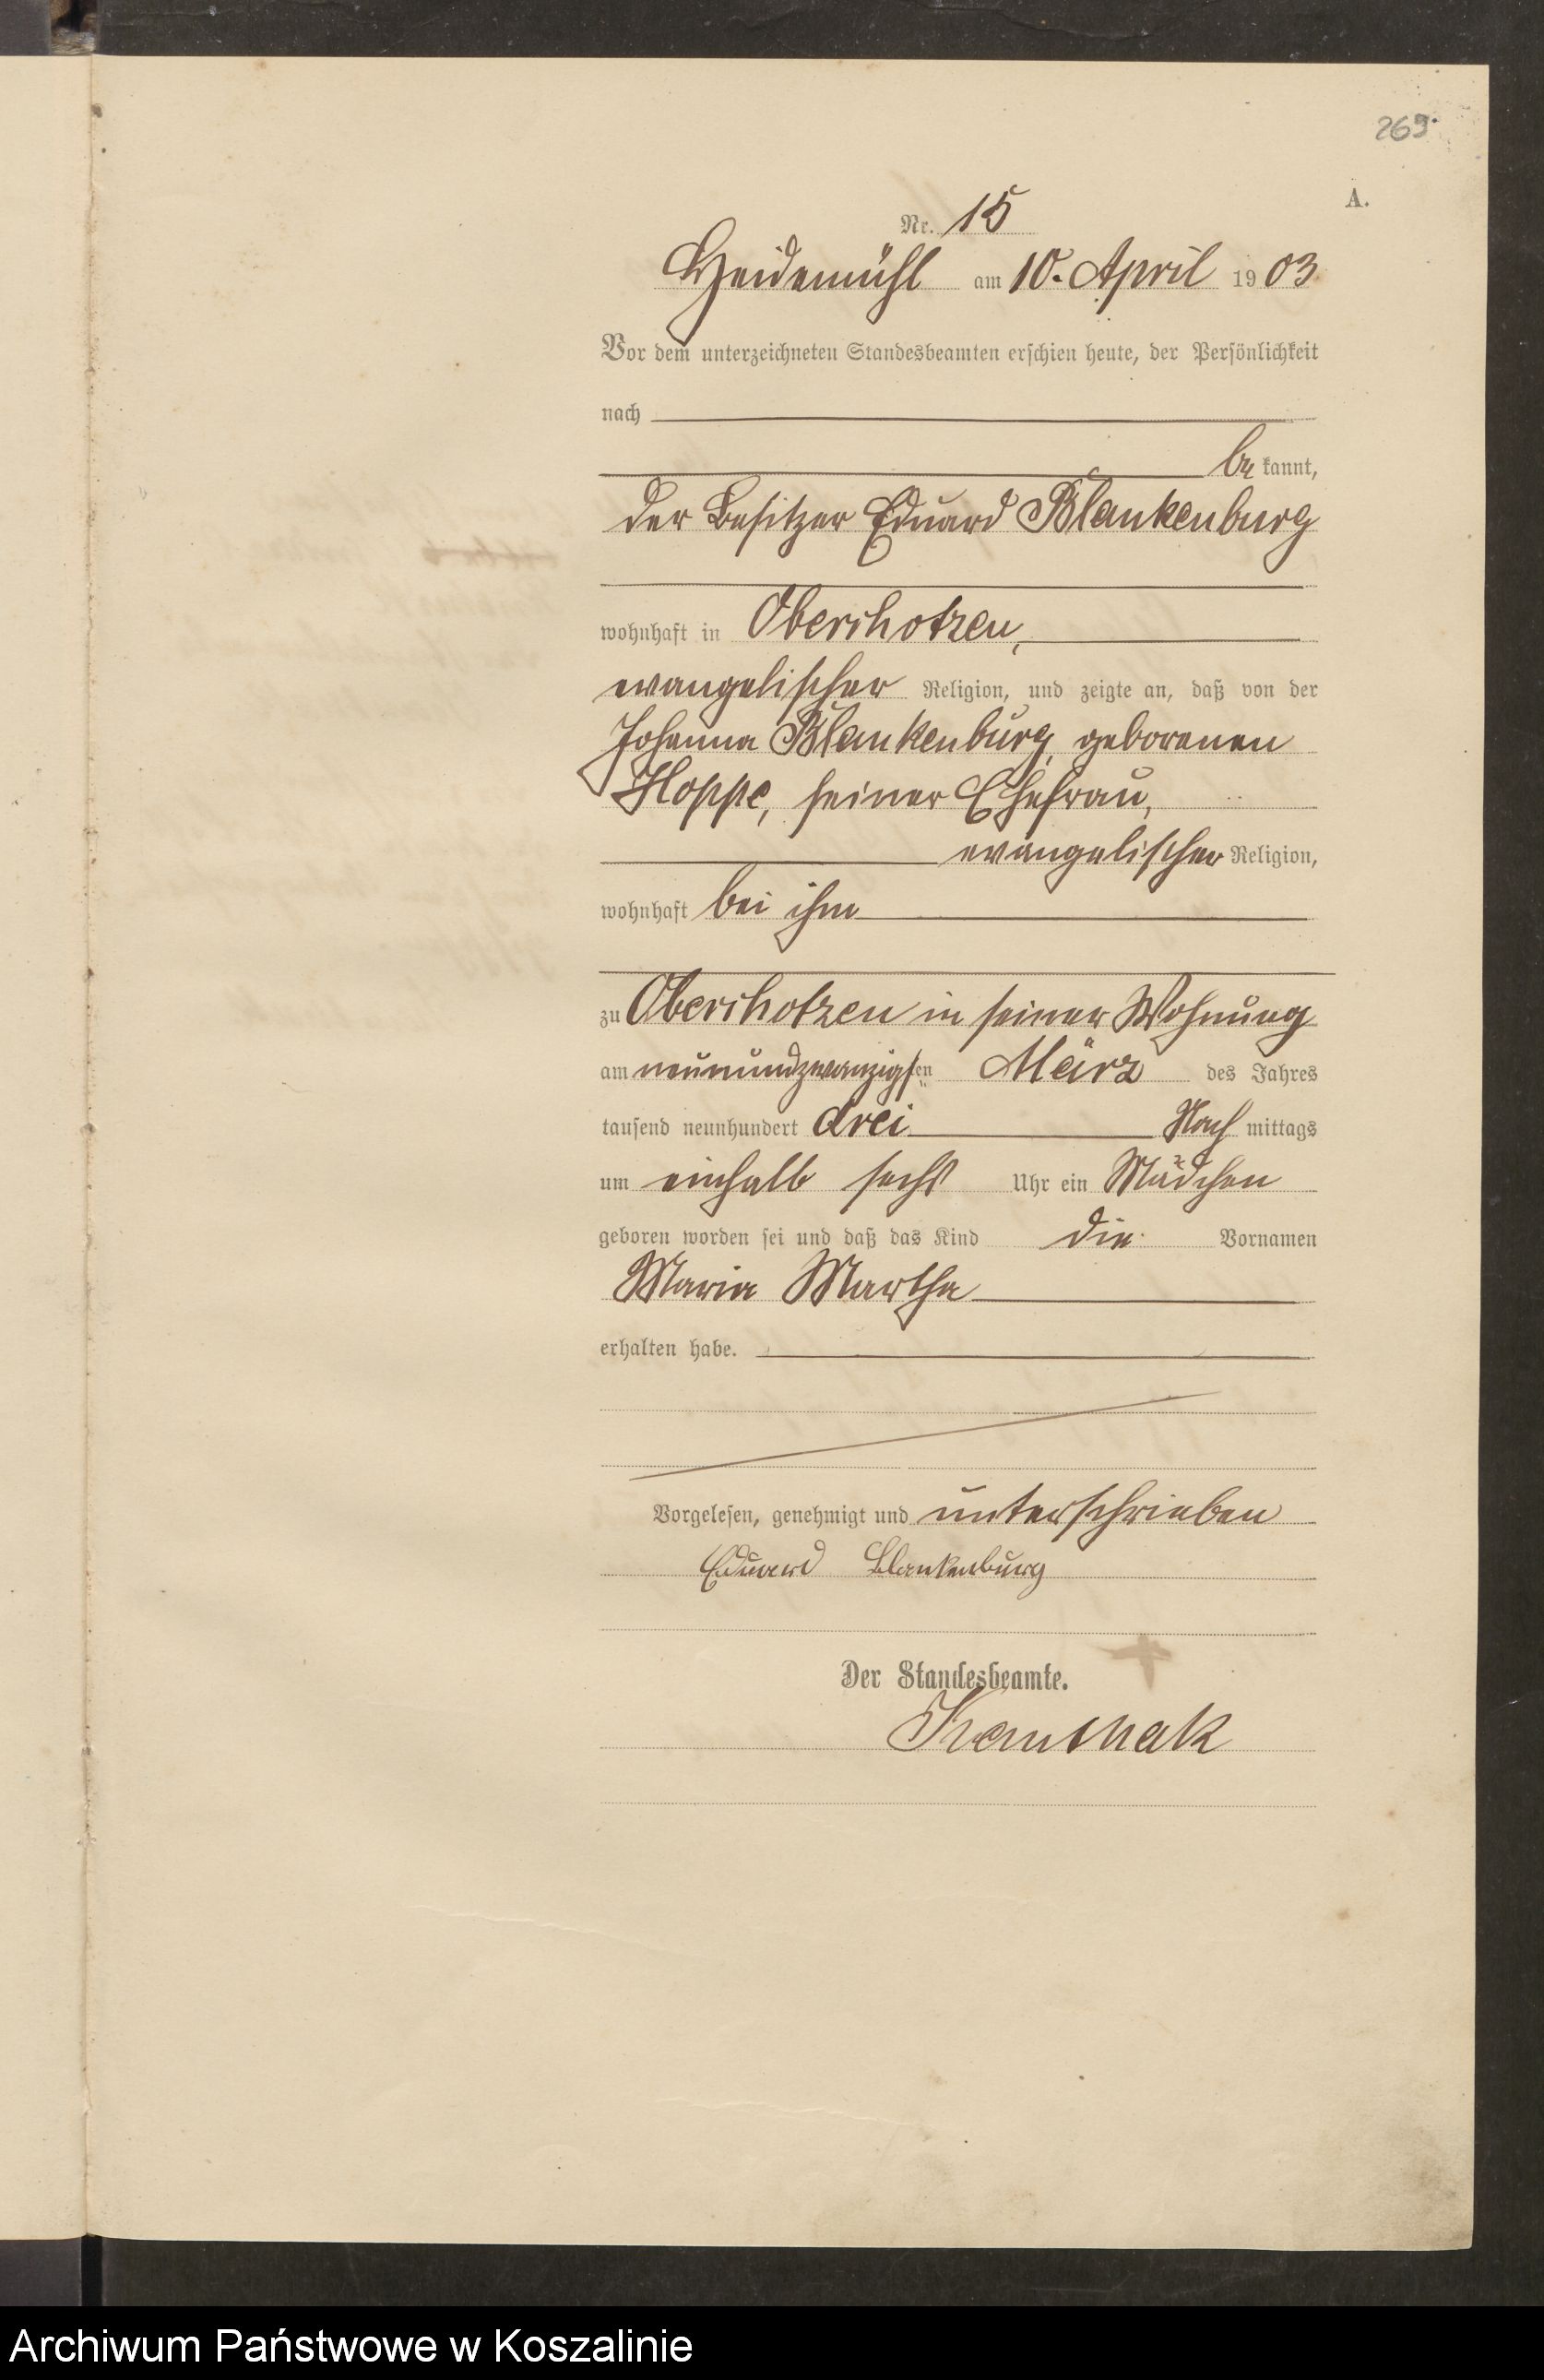 269.
A.
Nr. 15
Heidemühl am 10. April 1903
Vor dem unterzeichneten Standesbeamten erschien heute, der Persönlichkeit
nach
bekannt,
der Besitzer Eduard Blankenburg
wohnhaft in Oberchotzen,
evangelischer Religion, und zeigte an, daß von der
Johanna Blankenburg geborenen
Hoppe, seiner Ehefrau,
evangelischer Religion,
wohnhaft bei ihm
zu Oberchotzen in seiner Wohnung
am neunundzwanzigsten März des Jahres
tausend neunhundert drei Nachmittags
um einhalb sechs Uhr ein Mädchen
geboren worden sei und daß das Kind die Vornamen
Maria Martha
erhalten habe.
Vorgelesen, genehmigt und unterschrieben
Eduard Blankenburg
Der Standesbeamte.
Archiwum Państwowe w Koszalinie